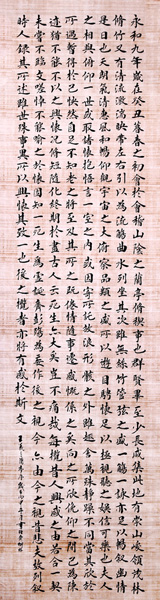 永和九年歲在癸丑暮春之初會於會稽山陰之蘭亭脩稧事也群賢畢至少長咸集此地有崇山峻領茂林
脩竹又有清流激湍映帶左右引以為流觴曲水列坐其次雖無絲竹管弦之盛一觴一詠亦足以暢敘幽情
是日也天朗氣清惠風和暢仰觀宇宙之大俯察品類之盛所以遊目騁懷足以極視聽之娛信可樂也夫人
之相與俯仰一世或取諸懷抱悟言一室之內或因寄所託放浪形骸之外雖趣舍萬殊靜躁不同當其欣於
所遇暫得於己快然自足不知老之將至及其所之既倦情隨事遷感慨係之矣向之所欣俛仰之間已為陳
跡猶不能不以之興懷况脩短隨化終期於盡古人云死生亦大矣豈不痛哉每攬昔人興感之由若合一契
未嘗不臨文嗟悼不能喻之於懷固知一死生為虛誕齊彭殤為妄作後之視今亦由今之視昔悲夫故列敘
時人錄其所述雖世殊事異所以興懷其致一也後之攬者亦將有感於斯文